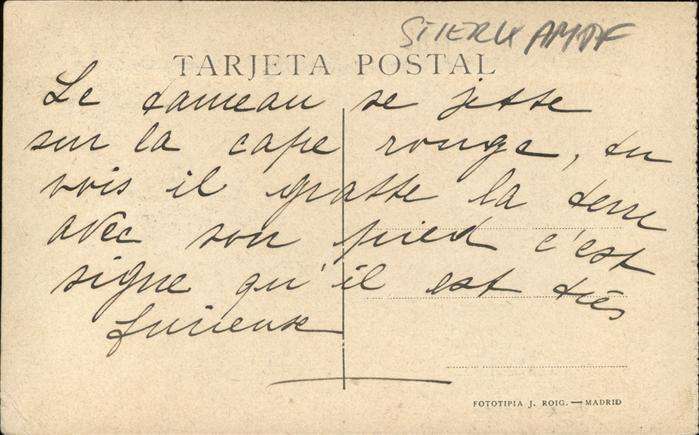 STIERKAMPF
TARJETA POSTAL
Le taureau se jette
sur la cape rouge, tu
vois il gratte la terre
avec son pied c'est
signe qu'il est très
furieux
FOTOTIPIA J. ROIG. — MADRID